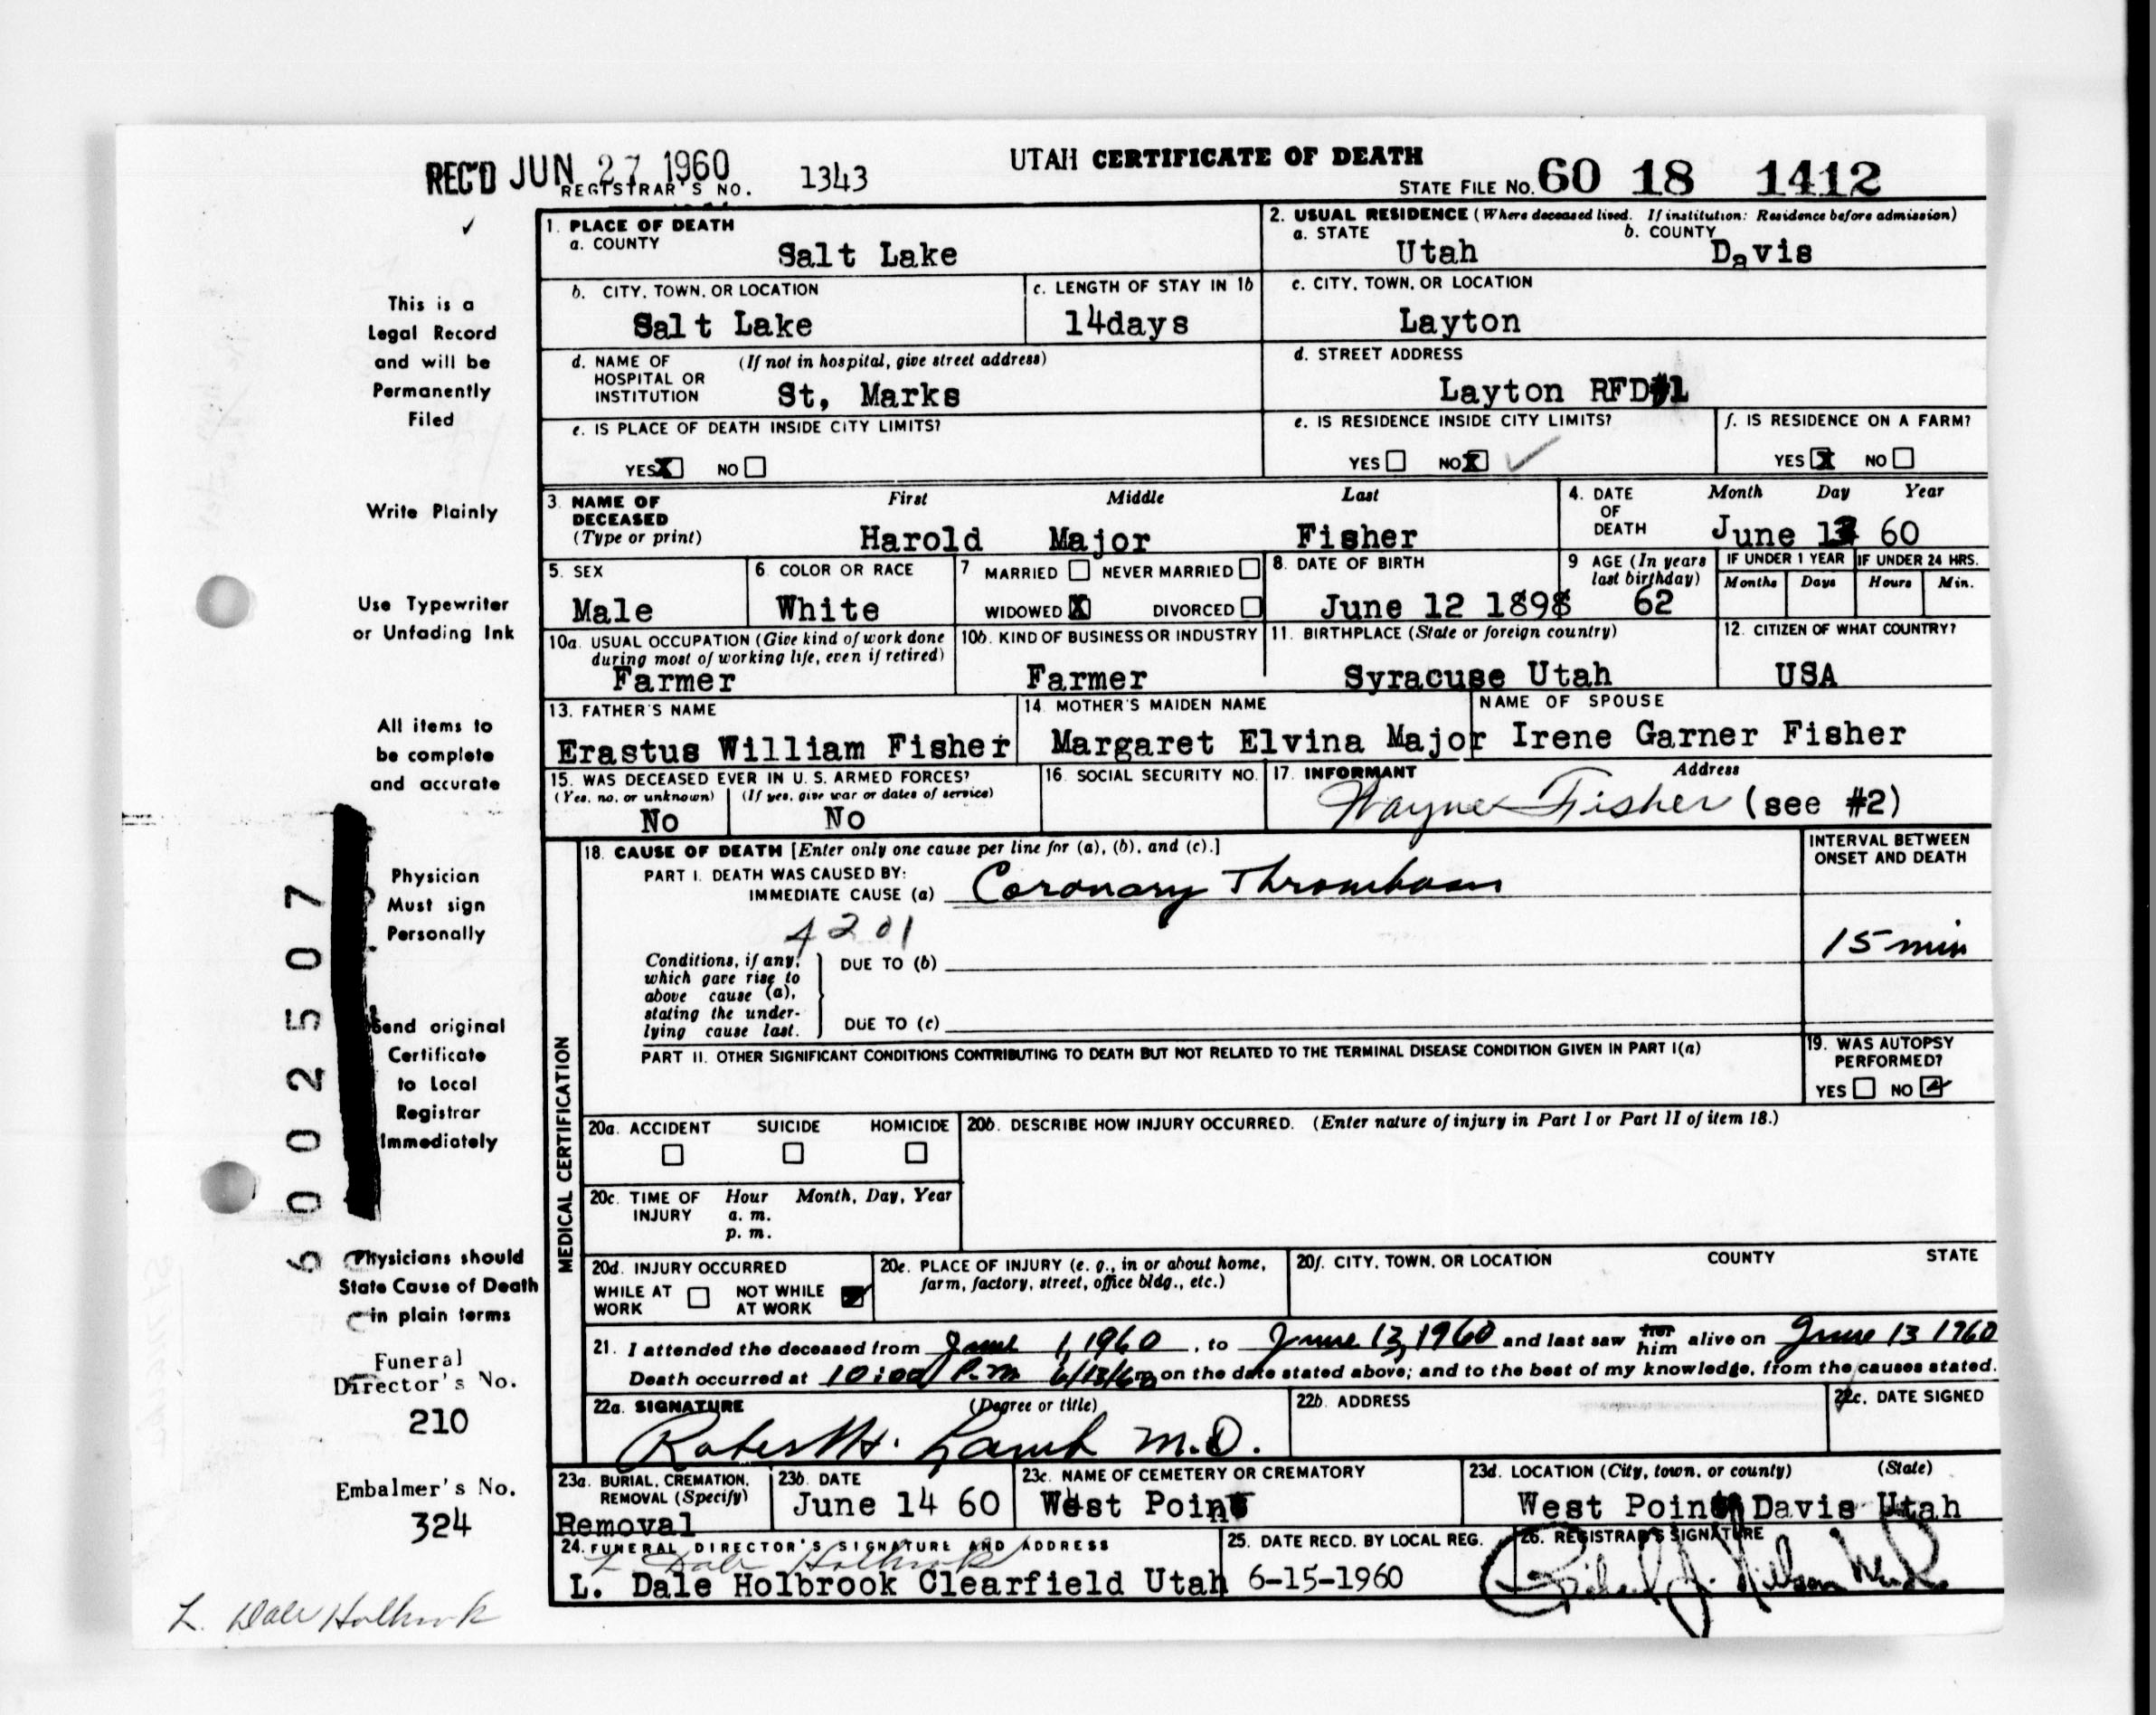 UTAH CERTIFICATE OF DEATH
REC'D JUN 27 1960
REGISTRAR'S NO. 1343
STATE FILE NO. 60 18 1412
This is a
Legal Record
and will be
Permanently
Filed
Write Plainly
Use Typewriter
or Unfading Ink
All items to
be complete
and accurate
Physician
Must sign
Personally
Send original
Certificate
to Local
Registrar
Immediately
Physicians should
State Cause of Death
in plain terms
Funeral
Director's No.
210
Embalmer's No.
324
6002507
L. Dale Holbrook
1. PLACE OF DEATH
a. COUNTY
Salt Lake
2. USUAL RESIDENCE (Where deceased lived. If institution: Residence before admission)
a. STATE b. COUNTY
Utah Davis
b. CITY, TOWN, OR LOCATION
Salt Lake
c. LENGTH OF STAY IN 1b
14days
c. CITY, TOWN, OR LOCATION
Layton
d. NAME OF (If not in hospital, give street address)
HOSPITAL OR
INSTITUTION St, Marks
d. STREET ADDRESS
Layton RFD#1
e. IS PLACE OF DEATH INSIDE CITY LIMITS?
YES X NO
e. IS RESIDENCE INSIDE CITY LIMITS?
YES NO X
f. IS RESIDENCE ON A FARM?
YES X NO
3. NAME OF First Middle Last
DECEASED
(Type or print) Harold Major Fisher
4. DATE Month Day Year
OF
DEATH June 13 60
5. SEX
Male
6. COLOR OR RACE
White
7 MARRIED NEVER MARRIED
WIDOWED X DIVORCED
8. DATE OF BIRTH
June 12 1898
9 AGE (In years
last birthday)
62
IF UNDER 1 YEAR IF UNDER 24 HRS.
Months Days Hours Min.
10a. USUAL OCCUPATION (Give kind of work done
during most of working life, even if retired)
Farmer
10b. KIND OF BUSINESS OR INDUSTRY
Farmer
11. BIRTHPLACE (State or foreign country)
Syracuse Utah
12. CITIZEN OF WHAT COUNTRY?
USA
13. FATHER'S NAME
Erastus William Fisher
14. MOTHER'S MAIDEN NAME
Margaret Elvina Major
NAME OF SPOUSE
Irene Garner Fisher
15. WAS DECEASED EVER IN U. S. ARMED FORCES?
(Yes, no, or unknown) (If yes, give war or dates of service)
No No
16. SOCIAL SECURITY NO.
17. INFORMANT Address
Wayne Fisher (see #2)
MEDICAL CERTIFICATION
18. CAUSE OF DEATH [Enter only one cause per line for (a), (b), and (c).]
PART I. DEATH WAS CAUSED BY:
IMMEDIATE CAUSE (a) Coronary Thrombosis
4201
Conditions, if any,
which gave rise to
above cause (a),
stating the under-
lying cause last.
DUE TO (b)
DUE TO (c)
INTERVAL BETWEEN
ONSET AND DEATH
15 min
PART II. OTHER SIGNIFICANT CONDITIONS CONTRIBUTING TO DEATH BUT NOT RELATED TO THE TERMINAL DISEASE CONDITION GIVEN IN PART I(a)
19. WAS AUTOPSY
PERFORMED?
YES NO
20a. ACCIDENT SUICIDE HOMICIDE
20b. DESCRIBE HOW INJURY OCCURRED. (Enter nature of injury in Part I or Part II of item 18.)
20c. TIME OF Hour Month, Day, Year
INJURY a. m.
p. m.
20d. INJURY OCCURRED
WHILE AT NOT WHILE
WORK AT WORK
20e. PLACE OF INJURY (e. g., in or about home,
farm, factory, street, office bldg., etc.)
20f. CITY, TOWN, OR LOCATION COUNTY STATE
21. I attended the deceased from 1, 1960, to June 13, 1960 and last saw her him alive on June 13 1960
Death occurred at 10:00 P.m 6/13/60 m on the date stated above; and to the best of my knowledge, from the causes stated.
22a. SIGNATURE (Degree or title)
Robert H. Lamb M.D.
22b. ADDRESS
22c. DATE SIGNED
23a. BURIAL, CREMATION,
REMOVAL (Specify)
Removal
23b. DATE
June 14 60
23c. NAME OF CEMETERY OR CREMATORY
West Point
23d. LOCATION (City, town, or county) (State)
West Point Davis Utah
24. FUNERAL DIRECTOR'S SIGNATURE AND ADDRESS
L Dale Holbrook
L. Dale Holbrook Clearfield Utah
25. DATE RECD. BY LOCAL REG.
6-15-1960
26. REGISTRAR'S SIGNATURE